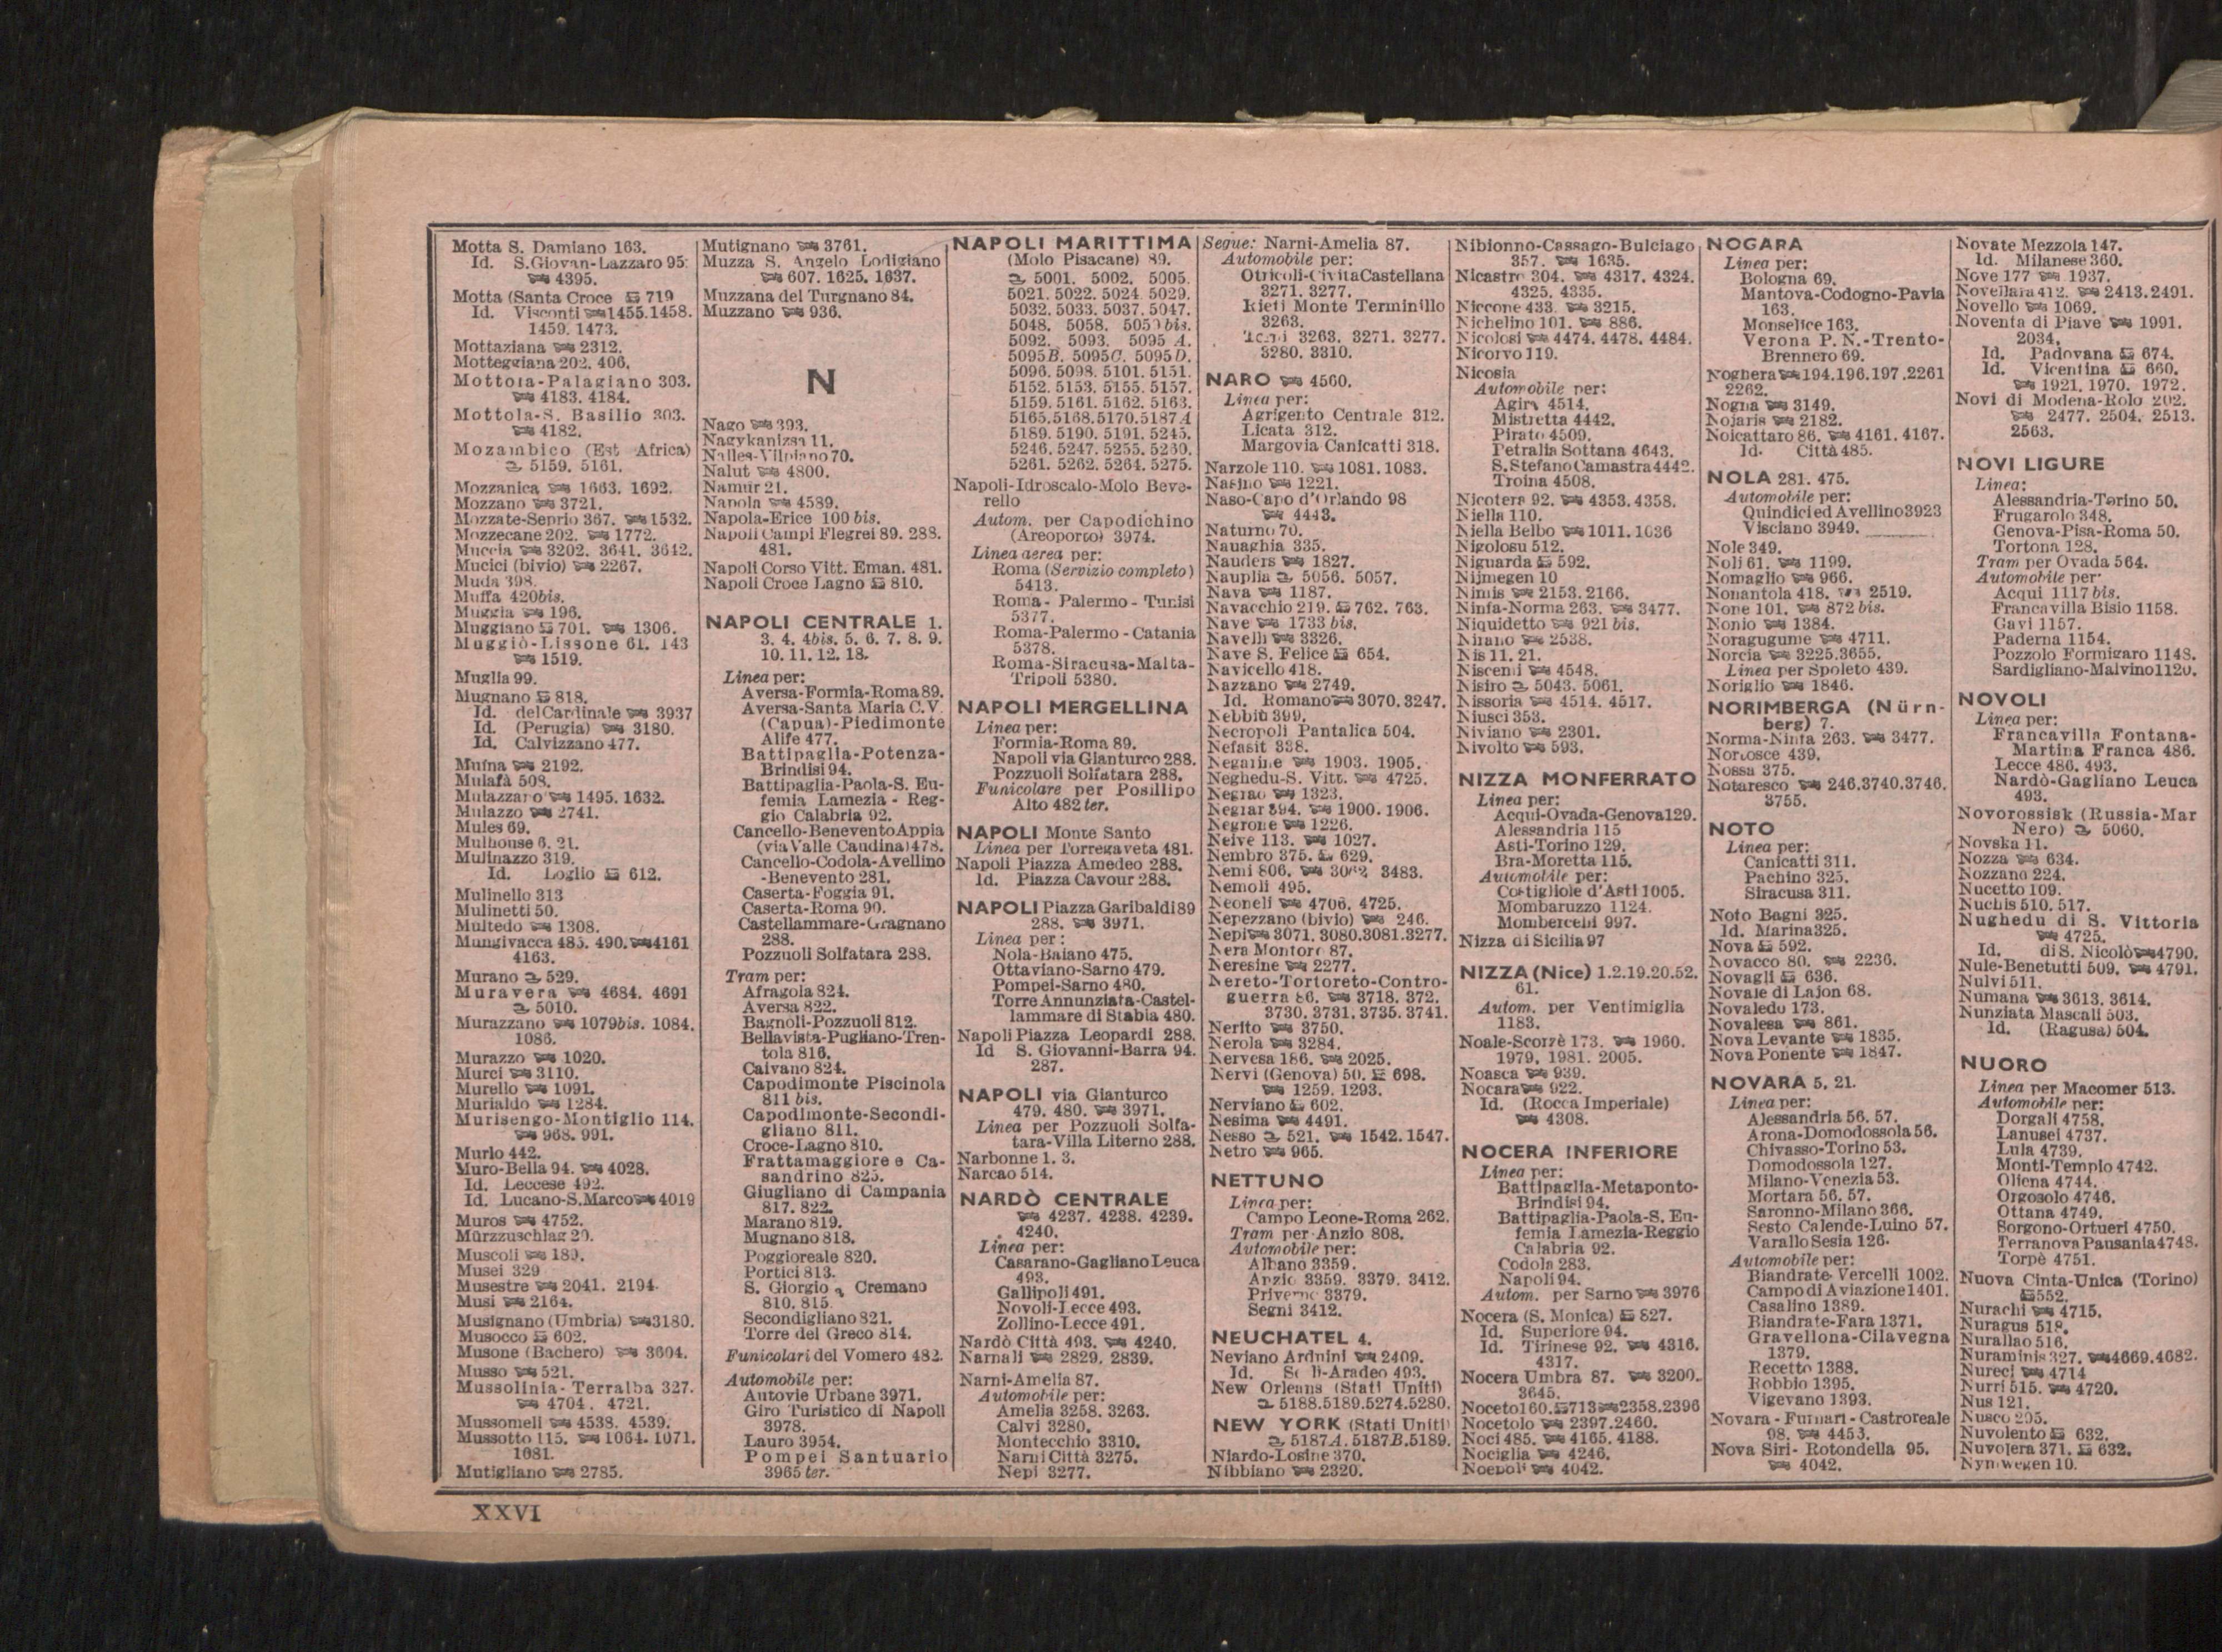 Motta S. Damiano 163.
Id. S.Giovan-Lazzaro 95.
4395.
Motta (Santa Croce 719
Id. Visconti 1455.1458.
1459. 1473.
Mottaziana 2312.
Motteggiana 202. 406.
Mottola-Palagiano 303.
4183. 4184.
Mottola-S. Basilio 303.
4182.
Mozambico (Est Africa)
5159. 5161.
Mozzanica 1663. 1692.
Mozzano 3721.
Mozzate-Seprio 367. 1532.
Mozzecane 202. 1772.
Muccia 3202. 3641. 3642.
Mucici (bivio) 2267.
Muda 398.
Muffa 420bis.
Muggia 196.
Muggiano 701. 1306.
Muggiò-Lissone 61. 143
1519.
Muglia 99.
Mugnano 818.
Id. del Cardinale 3937
Id. (Perugia) 3180.
Id. Calvizzano 477.
Muina 2192.
Mulafà 508.
Mulazzano 1495. 1632.
Mulazzo 2741.
Mules 69.
Mulhouse 6. 21.
Mulinazzo 319.
Id. Loglio 612.
Mulinello 313
Mulinetti 50.
Multedo 1308.
Mungivacca 485. 490. 4161
4163.
Murano 529.
Muravera 4684. 4691
5010.
Murazzano 1079bis. 1084.
1086.
Murazzo 1020.
Murci 3110.
Murello 1091.
Murialdo 1284.
Murisengo-Montiglio 114.
968. 991.
Murlo 442.
Muro-Bella 94. 4028.
Id. Leccese 492.
Id. Lucano-S.Marco 4019
Muros 4752.
Mürzzuschlag 20.
Muscoli 189.
Musei 329
Musestre 2041. 2194.
Musi 2164.
Musignano (Umbria) 3180.
Musocco 602.
Musone (Bachero) 3604.
Musso 521.
Mussolinia-Terralba 327.
4704. 4721.
Mussomeli 4538. 4539.
Mussotto 115. 1064. 1071.
1081.
Mutigliano 2785.
Mutignano 3761.
Muzza S. Angelo Lodigiano
607. 1625. 1637.
Muzzana del Turgnano 84.
Muzzano 936.
N
Nago 393.
Nagykanizsa 11.
Nalles-Vilpiano 70.
Nalut 4800.
Namur 21.
Napola 4589.
Napola-Erice 100 bis.
Napoli Campi Flegrei 89. 288.
481.
Napoli Corso Vitt. Eman. 481.
Napoli Croce Lagno 810.
NAPOLI CENTRALE 1.
3. 4. 4bis. 5. 6. 7. 8. 9.
10. 11. 12. 18.
Linea per:
Aversa-Formia-Roma 89.
Aversa-Santa Maria C.V.
(Capua)-Piedimonte
Alife 477.
Battipaglia-Potenza-
Brindisi 94.
Battipaglia-Paola-S. Eu-
femia Lamezia - Reg-
gio Calabria 92.
Cancello-Benevento Appia
(via Valle Caudina) 478.
Cancello-Codola-Avellino
-Benevento 281.
Caserta-Foggia 91.
Caserta-Roma 90.
Castellammare-Gragnano
288.
Pozzuoli Solfatara 288.
Tram per:
Afragola 824.
Aversa 822.
Bagnoli-Pozzuoli 812.
Bellavista-Pugliano-Tren-
tola 816.
Caivano 824.
Capodimonte Piscinola
811 bis.
Capodimonte-Secondi-
gliano 811.
Croce-Lagno 810.
Frattamaggiore e Ca-
sandrino 825.
Giugliano di Campania
817. 822.
Marano 819.
Mugnano 818.
Poggioreale 820.
Portici 813.
S. Giorgio a Cremano
810. 815.
Secondigliano 821.
Torre del Greco 814.
Funicolari del Vomero 482.
Automobile per:
Autovie Urbane 3971.
Giro Turistico di Napoli
3978.
Lauro 3954.
Pompei Santuario
3965 ter.
NAPOLI MARITTIMA
(Molo Pisacane) 89.
5001. 5002. 5005.
5021. 5022. 5024. 5029.
5032. 5033. 5037. 5047.
5048. 5058. 5059 bis.
5092. 5093. 5095 A.
5095B. 5095C. 5095D.
5096. 5098. 5101. 5151.
5152. 5153. 5155. 5157.
5159. 5161. 5162. 5163.
5165.5168.5170.5187A
5189. 5190. 5191. 5245.
5246. 5247. 5255. 5260.
5261. 5262. 5264. 5275.
Napoli-Idroscalo-Molo Beve-
rello
Autom. per Capodichino
(Areoporto) 3974.
Linea aerea per:
Roma (Servizio completo)
5413.
Roma - Palermo - Tunisi
5377.
Roma-Palermo - Catania
5378.
Roma-Siracusa-Malta-
Tripoli 5380.
NAPOLI MERGELLINA
Linea per:
Formia-Roma 89.
Napoli via Gianturco 288.
Pozzuoli Solfatara 288.
Funicolare per Posillipo
Alto 482 ter.
NAPOLI Monte Santo
Linea per Torregaveta 481.
Napoli Piazza Amedeo 288.
Id. Piazza Cavour 288.
NAPOLI Piazza Garibaldi 89
288. 3971.
Linea per:
Nola-Baiano 475.
Ottaviano-Sarno 479.
Pompei-Sarno 480.
Torre Annunziata-Castel-
lammare di Stabia 480.
Napoli Piazza Leopardi 288.
Id S. Giovanni-Barra 94.
287.
NAPOLI via Gianturco
479. 480. 3971.
Linea per Pozzuoli Solfa-
tara-Villa Literno 288.
Narbonne 1. 3.
Narcao 514.
NARDÒ CENTRALE
4237. 4238. 4239.
4240.
Linea per:
Casarano-Gagliano Leuca
493.
Gallipoli 491.
Novoli-Lecce 493.
Zollino-Lecce 491.
Nardò Città 493. 4240.
Narnali 2829. 2839.
Narni-Amelia 87.
Automobile per:
Amelia 3258. 3263.
Calvi 3280.
Montecchio 3310.
Narni Città 3275.
Nepi 3277.
Segue: Narni-Amelia 87.
Automobile per:
Otricoli-Civita Castellana
3271. 3277.
Rieti Monte Terminillo
3263.
Terni 3263. 3271. 3277.
3280. 3310.
NARO 4560.
Linea per:
Agrigento Centrale 312.
Licata 312.
Margovia Canicatti 318.
Narzole 110. 1081. 1083.
Nasino 1221.
Naso-Capo d'Orlando 98
4443.
Naturno 70.
Nauaghia 335.
Nauders 1827.
Nauplia 5056. 5057.
Nava 1187.
Navacchio 219. 762. 763.
Nave 1733 bis.
Navelli 3326.
Nave S. Felice 654.
Navicello 418.
Nazzano 2749.
Id. Romano 3070. 3247.
Nebbiù 399.
Necropoli Pantalica 504.
Nefasit 338.
Negarine 1903. 1905.
Neghedu-S. Vitt. 4725.
Negrao 1323.
Negrar 394. 1900. 1906.
Negrone 1226.
Neive 113. 1027.
Nembro 375. 629.
Nemi 806. 3483.
Nemoli 495.
Neoneli 4706. 4725.
Nepezzano (bivio) 246.
Nepi 3071. 3080.3081.3277.
Nera Montoro 87.
Neresine 2277.
Nereto-Tortoreto-Contro-
guerra 86. 3718. 372.
3730. 3731. 3735. 3741.
Nerito 3750.
Nerola 3284.
Nervesa 186. 2025.
Nervi (Genova) 50. 698.
1259. 1293.
Nerviano 602.
Nesima 4491.
Nesso 521. 1542. 1547.
Netro 965.
NETTUNO
Linea per:
Campo Leone-Roma 262.
Tram per Anzio 808.
Automobile per:
Albano 3359.
Anzio 3359. 3379. 3412.
Priverno 3379.
Segni 3412.
NEUCHATEL 4.
Neviano Ardnini 2409.
Id. li-Aradeo 493.
New Orleans (Stati Uniti)
5188.5189.5274.5280.
NEW YORK (Stati Uniti)
5187A. 5187B.5189.
Niardo-Losine 370.
Nibbiano 2320.
Nibionno-Cassago-Bulciago
357. 1635.
Nicastro 304. 4317. 4324.
4325. 4335.
Niccone 433. 3215.
Nichelino 101. 886.
Nicolosi 4474. 4478. 4484.
Nicorvo 119.
Nicosia
Automobile per:
Agira 4514.
Mistretta 4442.
Pirato 4509.
Petralia Sottana 4643.
S. Stefano Camastra 4442.
Troina 4508.
Nicotera 92. 4353. 4358.
Niella 110.
Niella Belbo 1011. 1036
Nigolosu 512.
Niguarda 592.
Nijmegen 10
Nimis 2153. 2166.
Ninfa-Norma 263. 3477.
Niquidetto 921 bis.
2538.
Nis 11. 21.
Niscemi 4548.
Nisiro 5043. 5061.
Nissoria 4514. 4517.
Niusci 353.
Niviano 2301.
Nivolto 593.
NIZZA MONFERRATO
Linea per:
Acqui-Ovada-Genova 129.
Alessandria 115
Asti-Torino 129.
Bra-Moretta 115.
Automobile per:
Costigliole d'Asti 1005.
Mombaruzzo 1124.
Mombercelli 997.
Nizza di Sicilia 97
NIZZA (Nice) 1.2.19.20.52.
61.
Autom. per Ventimiglia
1183.
Noale-Scorzè 173. 1960.
1979. 1981. 2005.
Noasca 939.
Nocara 922.
Id. (Rocca Imperiale)
4308.
NOCERA INFERIORE
Linea per:
Battipaglia-Metaponto-
Brindisi 94.
Battipaglia-Paola-S. Eu-
femia Lamezia-Reggio
Calabria 92.
Codola 283.
Napoli 94.
Autom. per Sarno 3976
Nocera (S. Monica) 827.
Id. Superiore 94.
Id. Tirinese 92. 4316.
4317.
Nocera Umbra 87. 3200.
3645.
Noceto 160. 713 2358.2396
Nocetolo 2397.2460.
Noci 485. 4165. 4188.
Nociglia 4246.
Noepoli 4042.
NOGARA
Linea per:
Bologna 69.
Mantova-Codogno-Pavia
163.
Monselice 163.
Verona P. N.-Trento-
Brennero 69.
Noghera 194.196.197.2261
2262.
Nogna 3149.
Nojaris 2182.
Noicattaro 86. 4161. 4167.
Id. Città 485.
NOLA 281. 475.
Automobile per:
Quindici ed Avellino 3923
Visciano 3949.
Nole 349.
Noli 61. 1199.
Nomaglio 966.
Nonantola 418. 2519.
None 101. 872 bis.
Nonio 1384.
Noragugume 4711.
Norcia 3225.3655.
Linea per Spoleto 439.
Noriglio 1846.
NORIMBERGA (Nürn-
berg) 7.
Norma-Ninfa 263. 3477.
Nortosce 439.
Nossa 375.
Notaresco 246.3740.3746.
3755.
NOTO
Linea per:
Canicatti 311.
Pachino 325.
Siracusa 311.
Noto Bagni 325.
Id. Marina 325.
Nova 592.
Novacco 80. 2236.
Novagli 636.
Novale di Lajon 68.
Novaledo 173.
Novalesa 861.
Nova Levante 1835.
Nova Ponente 1847.
NOVARA 5. 21.
Linea per:
Alessandria 56. 57.
Arona-Domodossola 56.
Chivasso-Torino 53.
Domodossola 127.
Milano-Venezia 53.
Mortara 56. 57.
Saronno-Milano 366.
Sesto Calende-Luino 57.
Varallo Sesia 126.
Automobile per:
Biandrate-Vercelli 1002.
Campo di Aviazione 1401.
Casalino 1389.
Biandrate-Fara 1371.
Gravellona-Cilavegna
1379.
Recetto 1388.
Robbio 1395.
Vigevano 1393.
Novara - Furnari - Castroreale
98. 4453.
Nova Siri - Rotondella 95.
4042.
Novate Mezzola 147.
Id. Milanese 360.
Nove 177 1937.
Novellara 412. 2413.2491.
Novello 1069.
Noventa di Piave 1991.
2034.
Id. Padovana 674.
Id. Vicentina 660.
1921. 1970. 1972.
Novi di Modena-Rolo 202.
2477. 2504. 2513.
2563.
NOVI LIGURE
Linea:
Alessandria-Torino 50.
Frugarolo 348.
Genova-Pisa-Roma 50.
Tortona 128.
Tram per Ovada 564.
Automobile per:
Acqui 1117 bis.
Francavilla Bisio 1158.
Gavi 1157.
Paderna 1154.
Pozzolo Formigaro 1148.
Sardigliano-Malvino 1120.
NOVOLI
Linea per:
Francavilla Fontana-
Martina Franca 486.
Lecce 486. 493.
Nardò-Gagliano Leuca
493.
Novorossisk (Russia-Mar
Nero) 5060.
Novska 11.
Nozza 634.
Nozzano 224.
Nucetto 109.
Nuchis 510. 517.
Nughedu di S. Vittoria
4725.
Id. di S. Nicolò 4790.
Nule-Benetutti 509. 4791.
Nulvi 511.
Numana 3613. 3614.
Nunziata Mascali 503.
Id. (Ragusa) 504.
NUORO
Linea per Macomer 513.
Automobile per:
Dorgali 4758.
Lanusei 4737.
Lula 4739.
Monti-Tempio 4742.
Oliena 4744.
Orgosolo 4746.
Ottana 4749.
Sorgono-Ortueri 4750.
Terranova Pausania 4748.
Torpè 4751.
Nuova Cinta-Unica (Torino)
552.
Nurachi 4715.
Nuragus 518.
Nurallao 516.
Nuraminis 327. 4669.4682.
Nureci 4714
Nurri 515. 4720.
Nus 121.
Nusco 295.
Nuvolento 632.
Nuvolera 371. 632.
Nymwegen 10.
XXVI